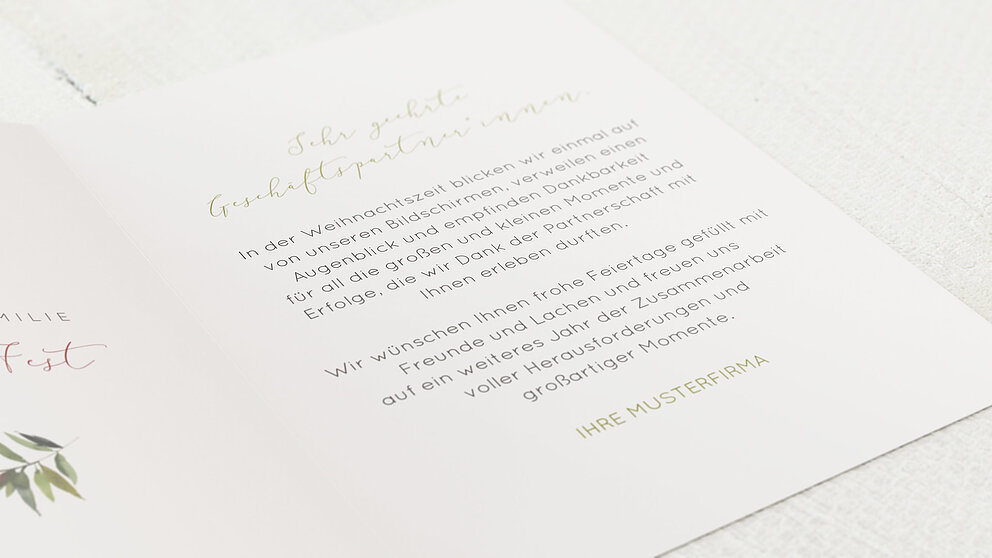 MILIE
Fest
Sehr geehrte
Geschäftspartner*innen,
In der Weihnachtszeit blicken wir einmal auf
von unseren Bildschirmen, verweilen einen
Augenblick und empfinden Dankbarkeit
für all die großen und kleinen Momente und
Erfolge, die wir Dank der Partnerschaft mit
Ihnen erleben durften.
Wir wünschen Ihnen frohe Feiertage gefüllt mit
Freunde und Lachen und freuen uns
auf ein weiteres Jahr der Zusammenarbeit
voller Herausforderungen und
großartiger Momente.
IHRE MUSTERFIRMA